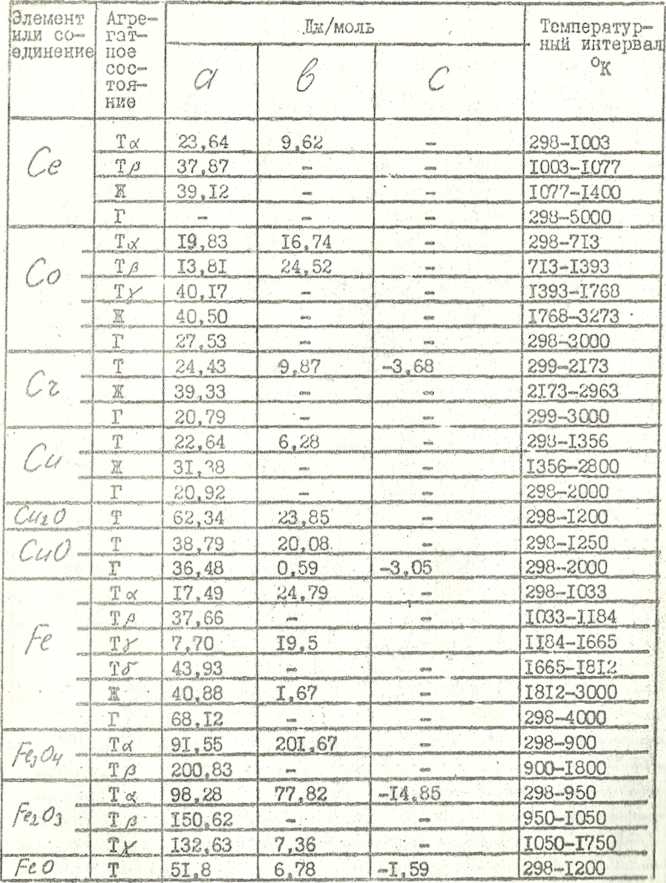 Элемент или со- единение | Агре- гат- ное сос- тоя- ние | Дж/моль | Температур- ный интервал °К
а | в | с
Ce | Тα | 23,64 | 9,62 | – | 298-I003
Тβ | 37,87 | – | – | I003-I077
Ж | 39,I2 | – | – | I077-I400
Г | – | – | – | 298-5000
Co | Тα | I9,83 | I6,74 | – | 298-7I3
Тβ | I3,8I | 24,52 | – | 7I3-I393
Тγ | 40,I7 | – | – | I393-I768
Ж | 40,50 | – | – | I768-3273
Г | 27,53 | – | – | 298-3000
Cr | Т | 24,43 | 9,87 | -3,68 | 299-2I73
Ж | 39,33 | – | – | 2I73-2963
Г | 20,79 | – | – | 299-3000
Cu | Т | 22,64 | 6,28 | – | 298-I356
Ж | 3I,38 | – | – | I356-2800
Г | 20,92 | – | – | 298-2000
Cu₂O | Т | 62,34 | 23,85 | – | 298-I200
CuO | Т | 38,79 | 20,08 | – | 298-I250
Г | 36,48 | 0,59 | -3,05 | 298-2000
Fe | Тα | I7,49 | 24,79 | – | 298-I033
Тβ | 37,66 | – | – | I033-II84
Тγ | 7,70 | I9,5 | – | II84-I665
Тδ | 43,93 | – | – | I665-I8I2
Ж | 40,88 | I,67 | – | I8I2-3000
Г | 68,I2 | – | – | 298-4000
Fe₃O₄ | Тα | 9I,55 | 20I,67 | – | 298-900
Тβ | 200,83 | – | – | 900-I800
Fe₂O₃ | Тα | 98,28 | 77,82 | -I4,85 | 298-950
Тβ | I50,62 | – | – | 950-I050
Тγ | I32,63 | 7,36 | – | I050-I750
FeO | Т | 5I,8 | 6,78 | -I,59 | 298-I200